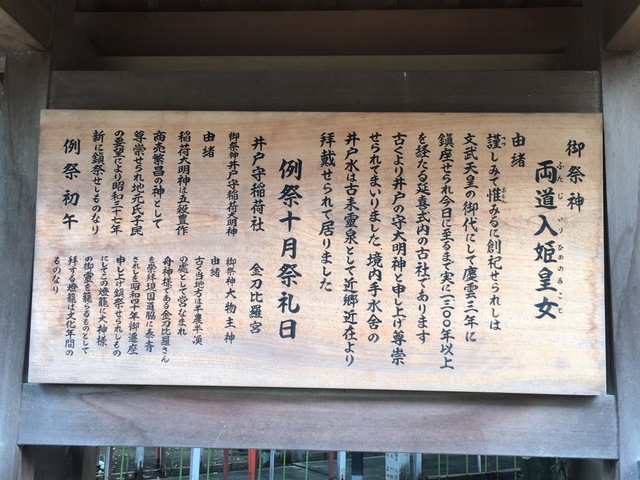 御祭神
両道入姫皇女
ふたじいりひめのみこと
由緒
謹しみて惟みるに創祀せられしは
文武天皇の御代にして慶雲三年に
鎮座せられ今日に至るまで実に一三〇〇年以上
を経たる延喜式内の古社であります
古くより井戸の守大明神と申し上げ尊崇
せられてまいりました 境内手水舎の
井戸水は古来霊泉として近郷近在より
拝戴せられて居りました
例祭十月祭礼日
井戸守稲荷社
御祭神井戸守稲荷大明神
由緒
稲荷大明神は五穀豊作
商売繁昌の神として
尊崇せられ地元氏子民
の要望により昭和三十七年
新に鎮祭せしものなり
例祭初午
金刀比羅宮
御祭神大物主神
由緒
古く当地方は半農半漁
の処として営なまれ
舟神様である金刀比羅さん
を崇拝現国道脇に奉斎
されしを昭和四十年御遷座
申し上げ鎮祭せられしもの
にしてこの燈籠に大神様
の御霊を籠らるものとして
拜する燈籠は文化年間の
ものなり